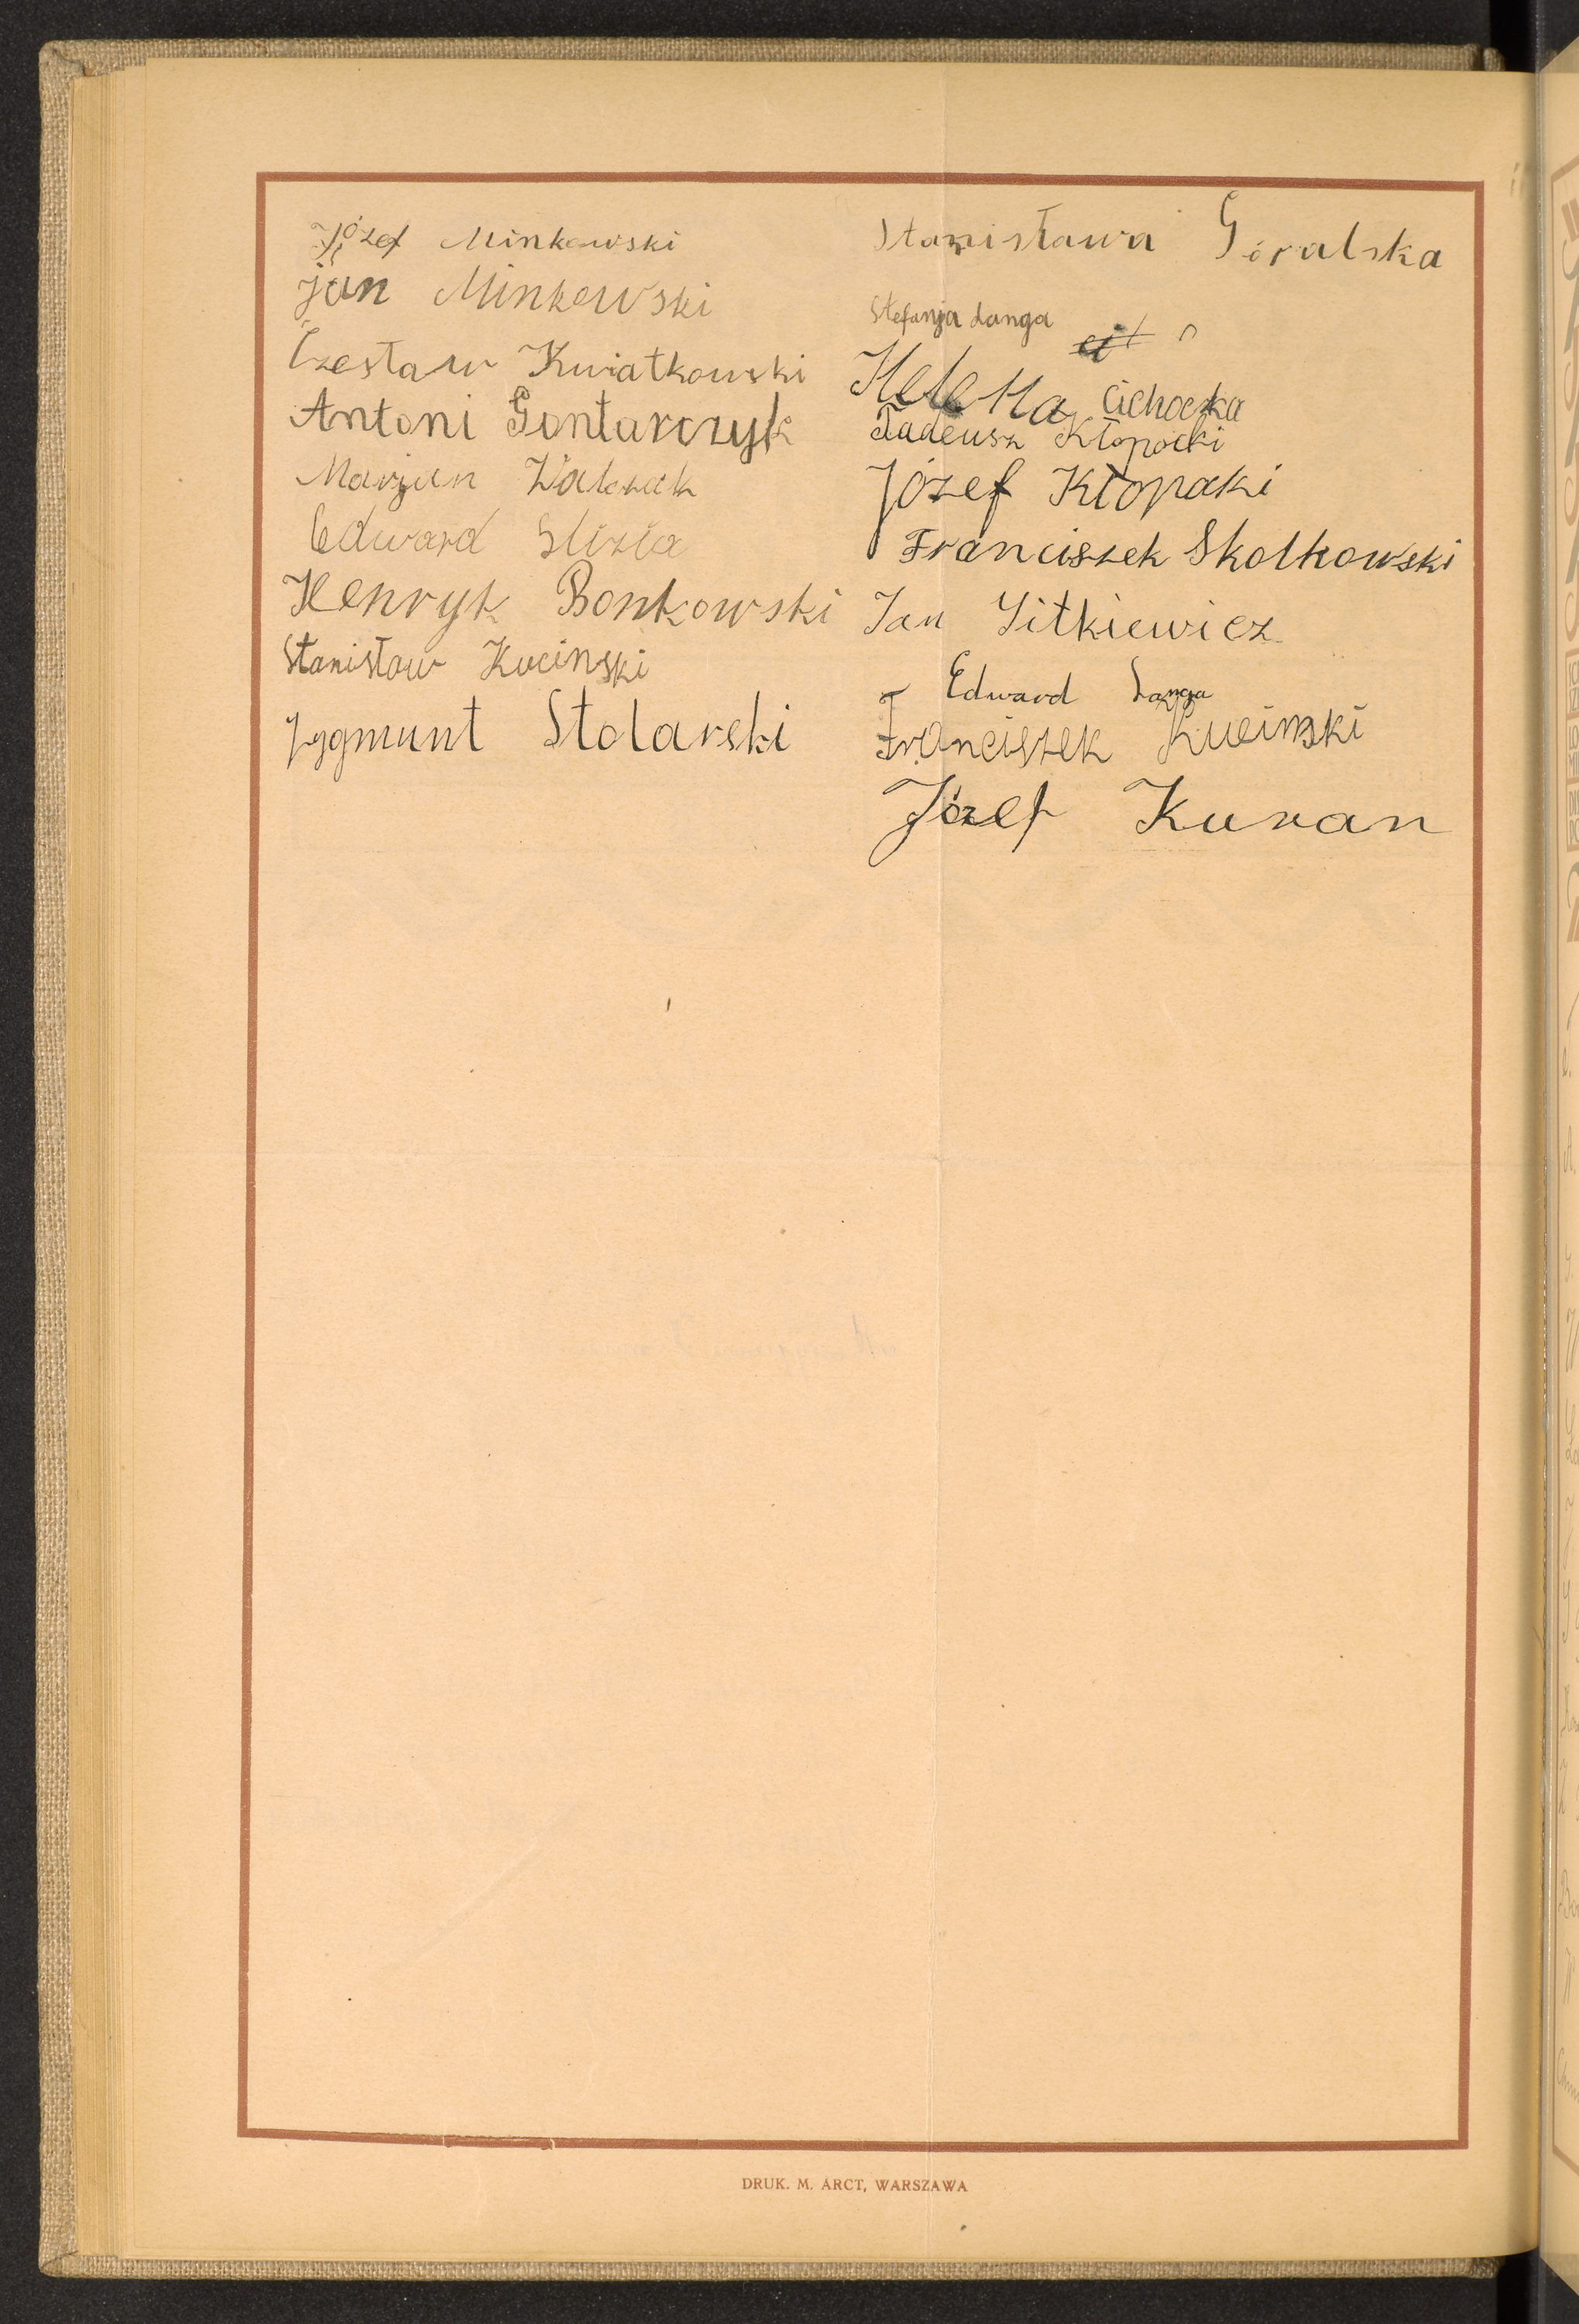 Józef Minkowski
Jan Minkowski
Czesław Kwiatkowski
Antoni Gontarczyk
Marjan Walczak
Edward Slizia
Henryk Bonkowski
Stanisław Kucinski
Zygmunt Stolarski
Stanisława Góralska
Stefanja Langa
Helena Cichocka
Tadeusz Kłopocki
Józef Kłopocki
Franciszek Skolkowski
Jan Sitkiewicz
Edward Langa
Franciszek Kucinski
Józef Kuran
DRUK. M. ARCT, WARSZAWA